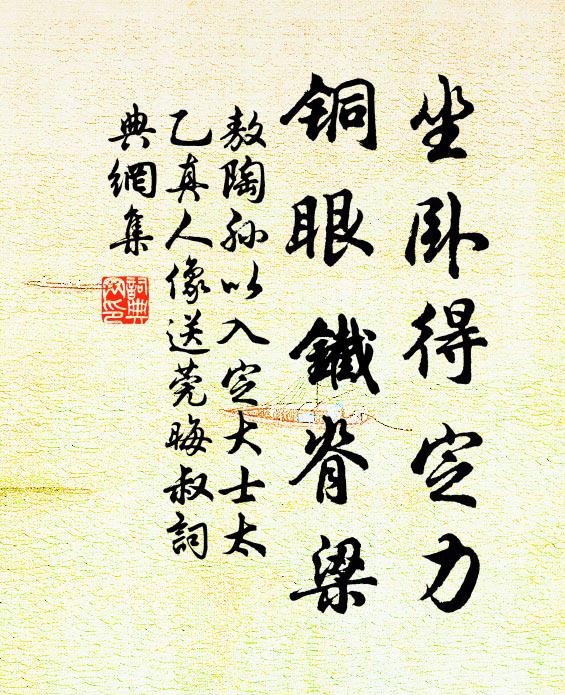 坐卧得定力
銅眼鐵脊梁
敖陶孙以入定大士太
乙真人像送莞晦叔詞
典網集
詞典
网印